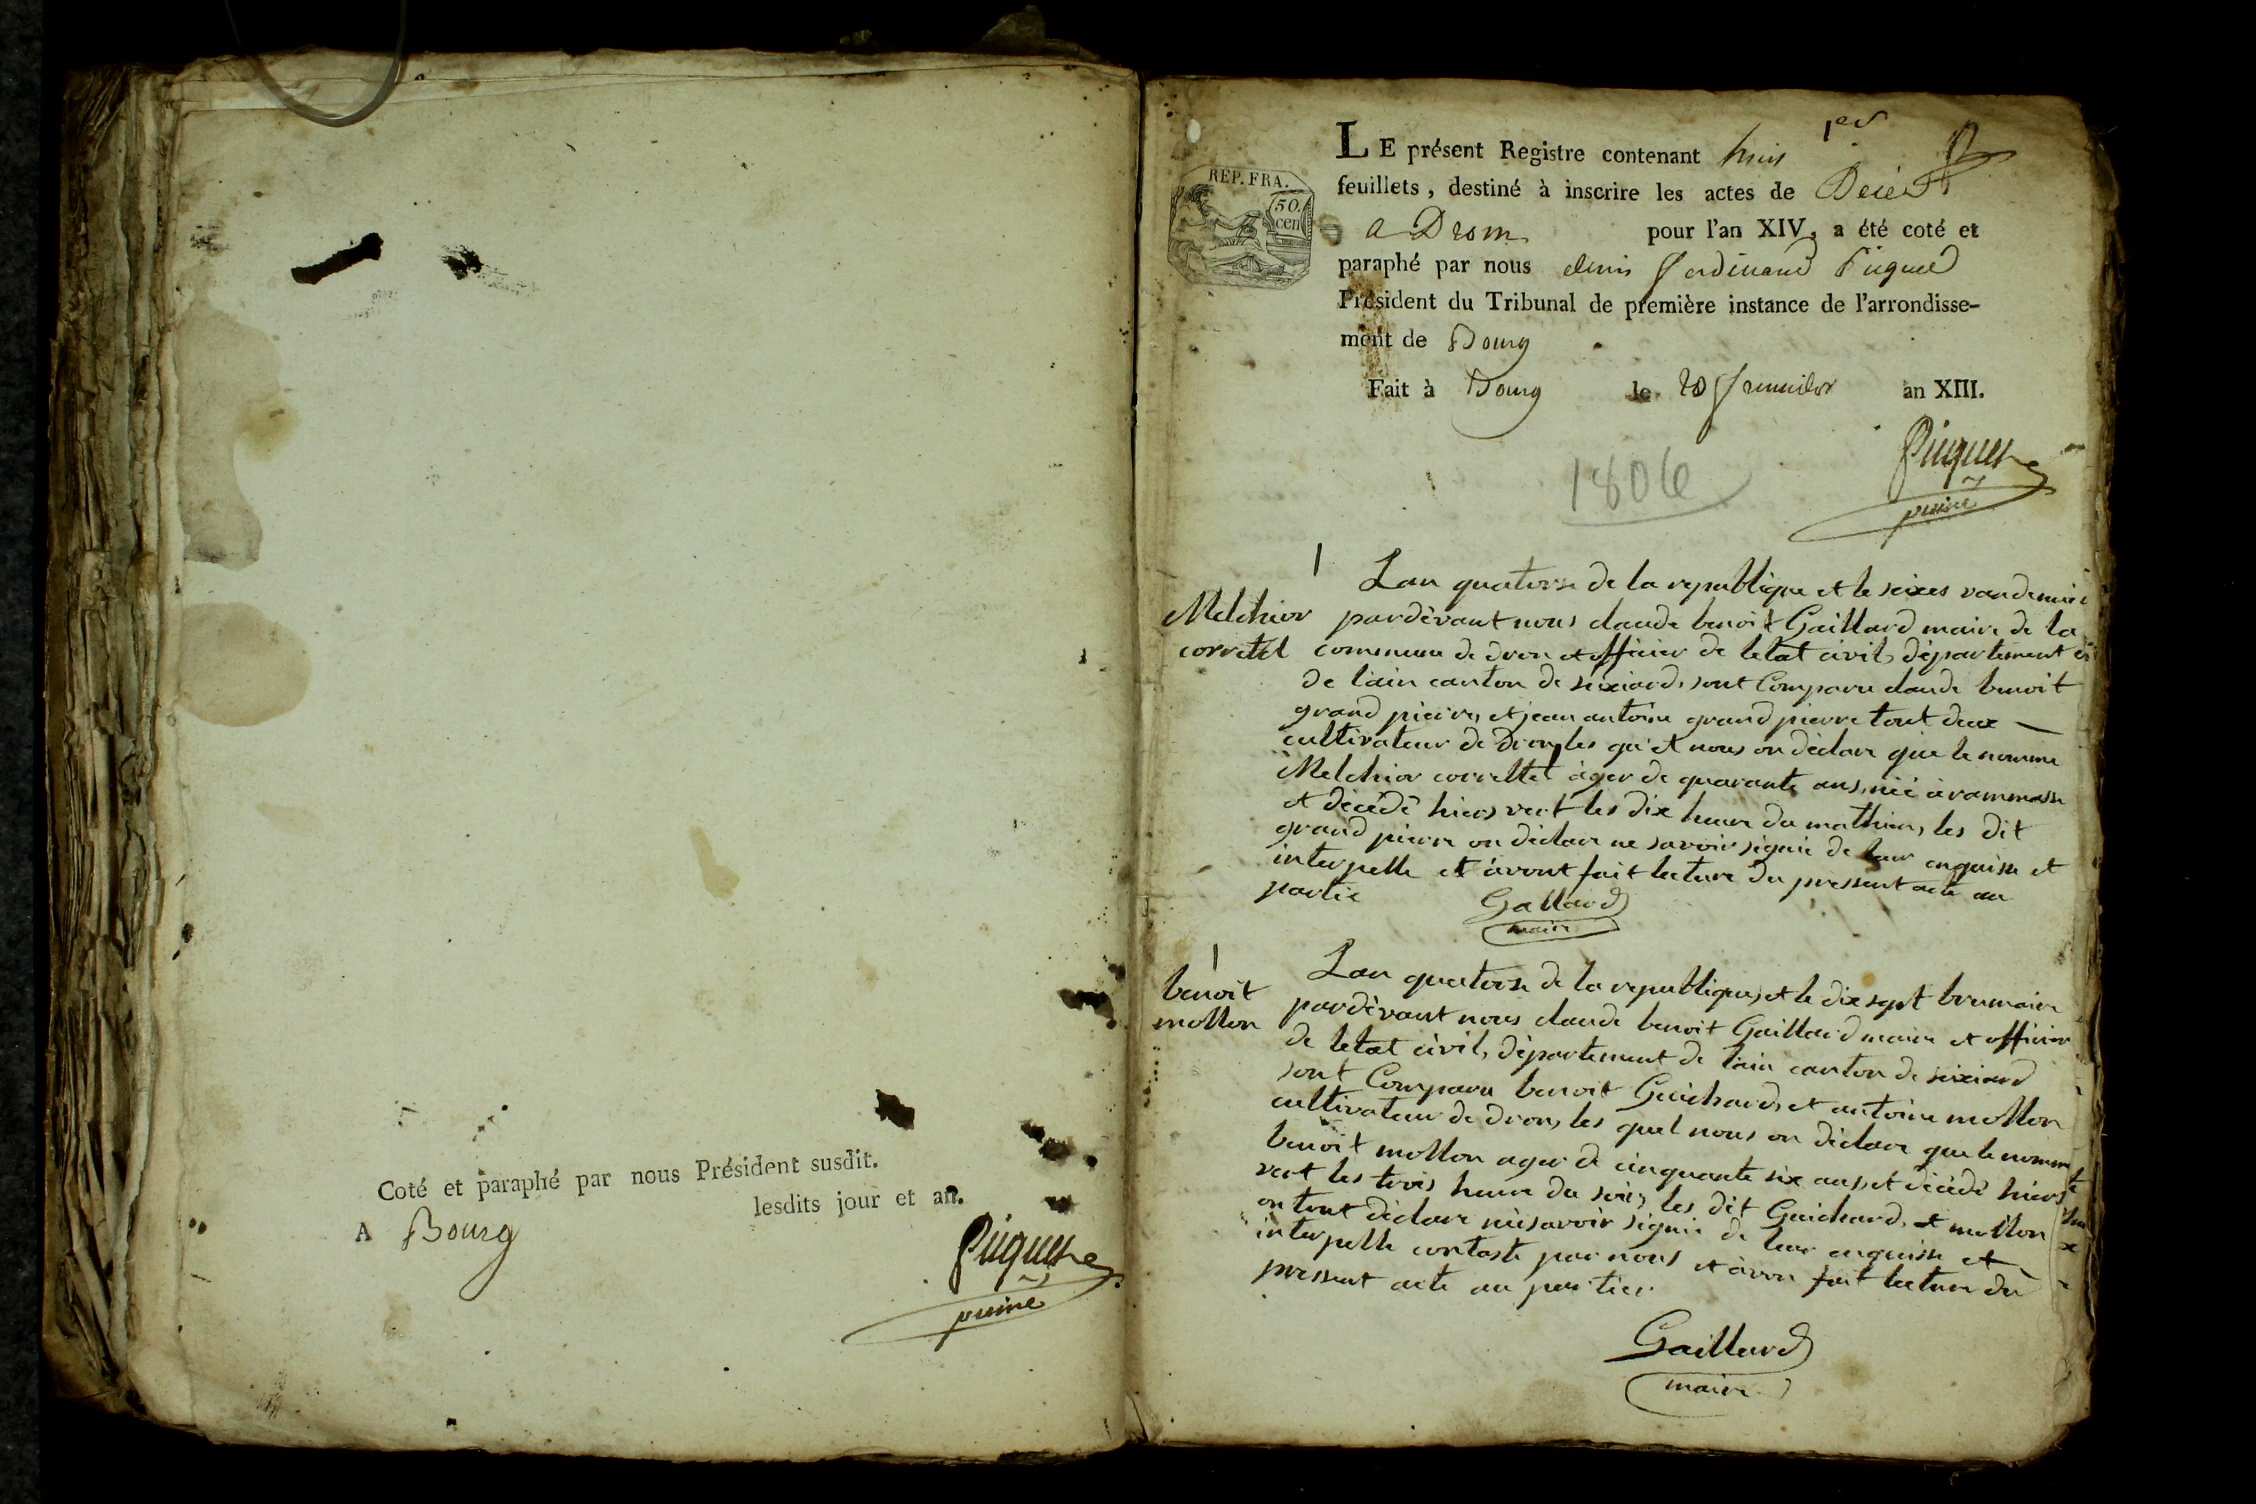 Coté et paraphé par nous Président susdit.
A Bourg lesdits jour et an.
Piquet
puiné
1er
LE présent Registre contenant huit
feuillets, destiné à inscrire les actes de Décès
a Drom pour l'an XIV, a été coté et
paraphé par nous denis ferdinand Piquet
Président du Tribunal de première instance de l'arrondisse-
ment de Bourg
Fait à Bourg le 20 fructidor an XIII.
REP. FRA.
50.
cen
Piquet
puiné
1806
1
Melchior
corretel
Lan quatorse de la republique et le seixes vandemiè
pardèvant nous claude benoit Gaillard maire de la
commune de dron et officier de letat civil, département
de l'ain canton de seixiard, sont Comparu claude benoit
grand pierre, et jean antoine grand pierre tout deux
cultivateur de Dron, les qu'el nous on dèclare que le nomme
Melchior correltel àger de quarante ans, née à rammasse
et dècèdè hiers vert les dix heure du mathien, les dit
grand pierre on dèclare ne savoir signie de leur enquise et
interpelle et àvont fait lecture du pressent acte au
partie
Gallard
maire
1
benoit
mollon
Lan quatorse de la republique, et le dix sept brumaire
pardèvant nous claude benoit Gaillard maire et officier
de letat civil, dèpartement de l'ain canton de seixiard
sont Comparu benoit Guichard, et antoine mollon
cultivateur de dron, les quel nous on dèclare que le nomme
benoit mollon ager de cinquante six ans, et dècèdè hiers
vert les trois heure du soir, les dit Guichard, et mollon
on tout dèclare nèsavoir signie de leur enquise et
interpelle contaste par nous et àvon fait lecture du
pressent acte au partier.
Gaillard
maire